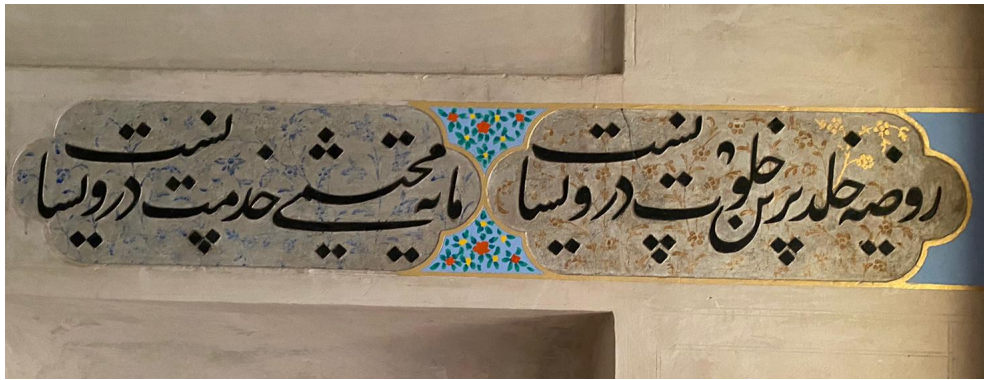 روضه خلد برین خلوت درویشانست
مایه محتشمی خدمت درویشانست